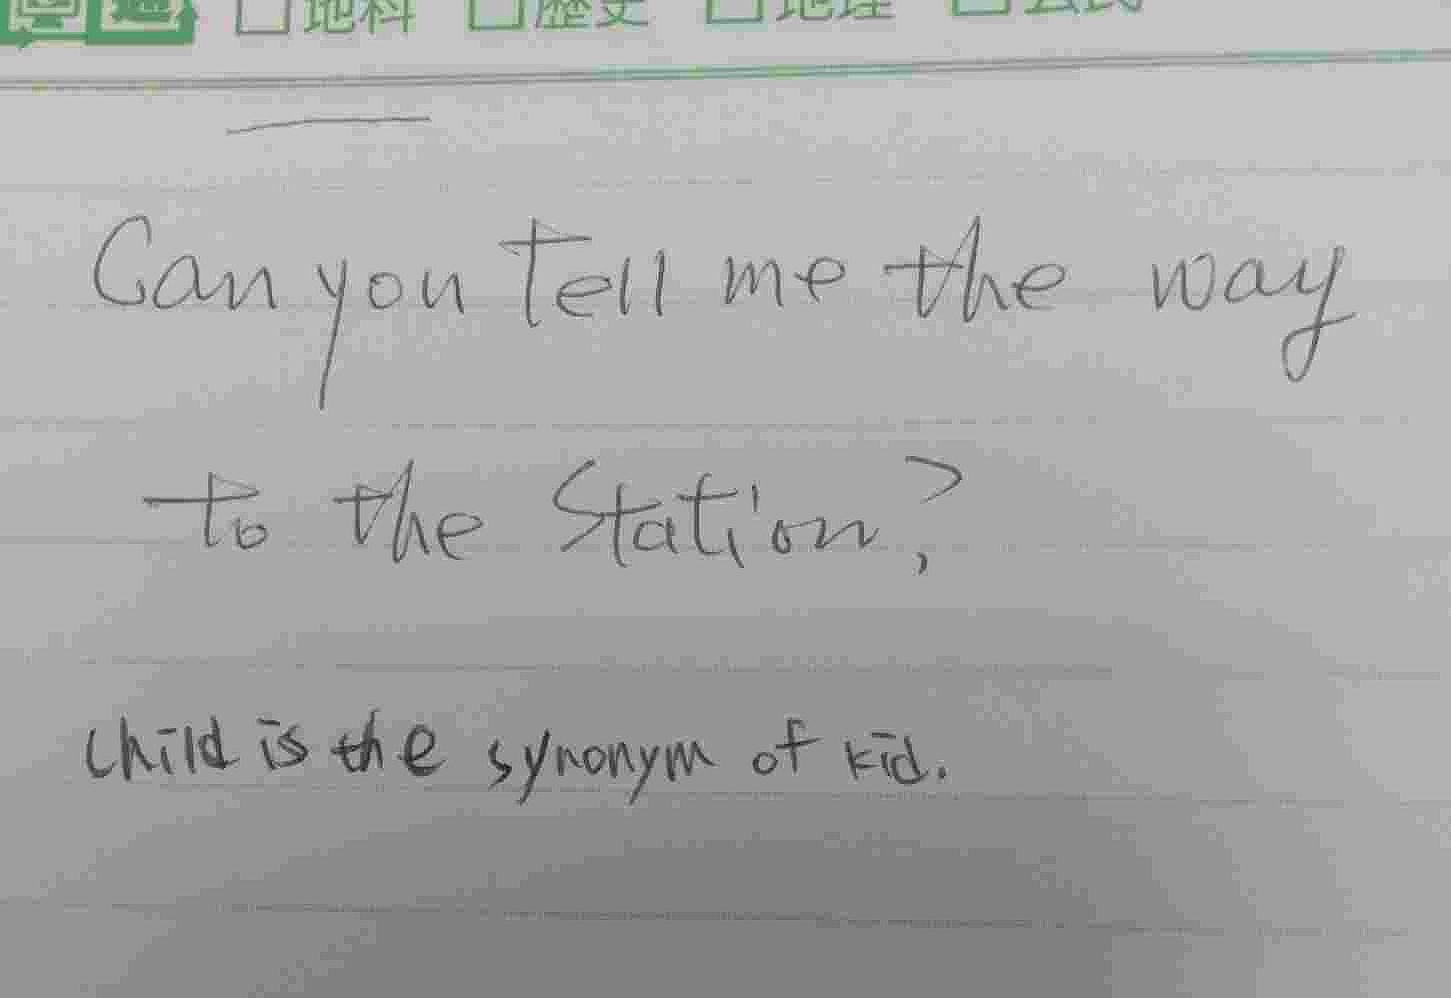 地科 歴史 地理 公民
Can you tell me the way
to the Station?
child is the synonym of kid.